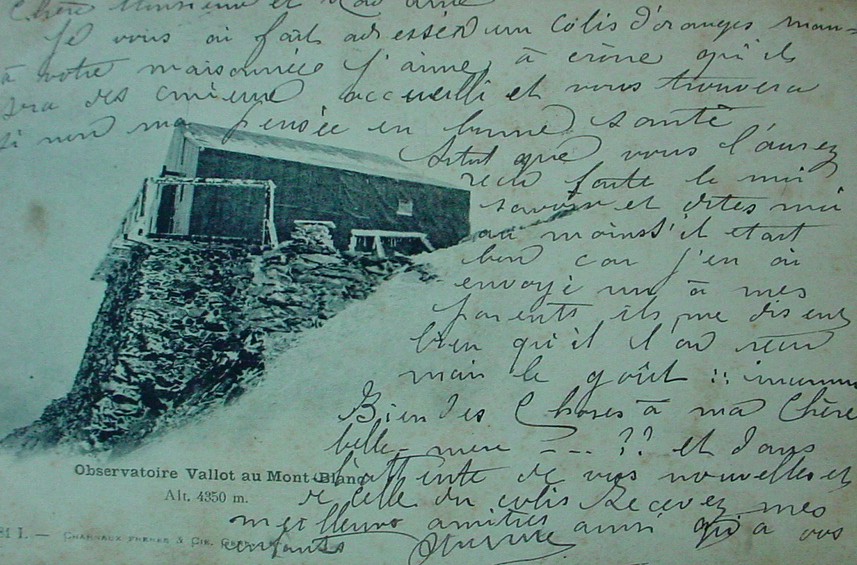 Chère Monsieur et Madame
Je vous ai fait adresser un colis d'oranges man=
à votre maisonnée j'aime à croire qu'ils
sera des mieux accueilli et vous trouvera
si non ma pensée en bonne santé
Sitot que vous l'aurez
recu faite le moi
savoir et dites moi
au moins s'il etait
bon car j'en ai
envoyé un à mes
parents ils me disent
bien qu'il l'on recu
mais le goût ::
Bien des Choses à ma Chère
belle mere --- ?? et dans
l'attente de vos nouvelles et
de celle du colis Recevez mes
meilleures amitiés ainsi qu'a vos
enfants
Observatoire Vallot au Mont-Blanc
Alt. 4350 m.
81 I. — CHARNAUX FRÈRES & CIE. GENÈVE